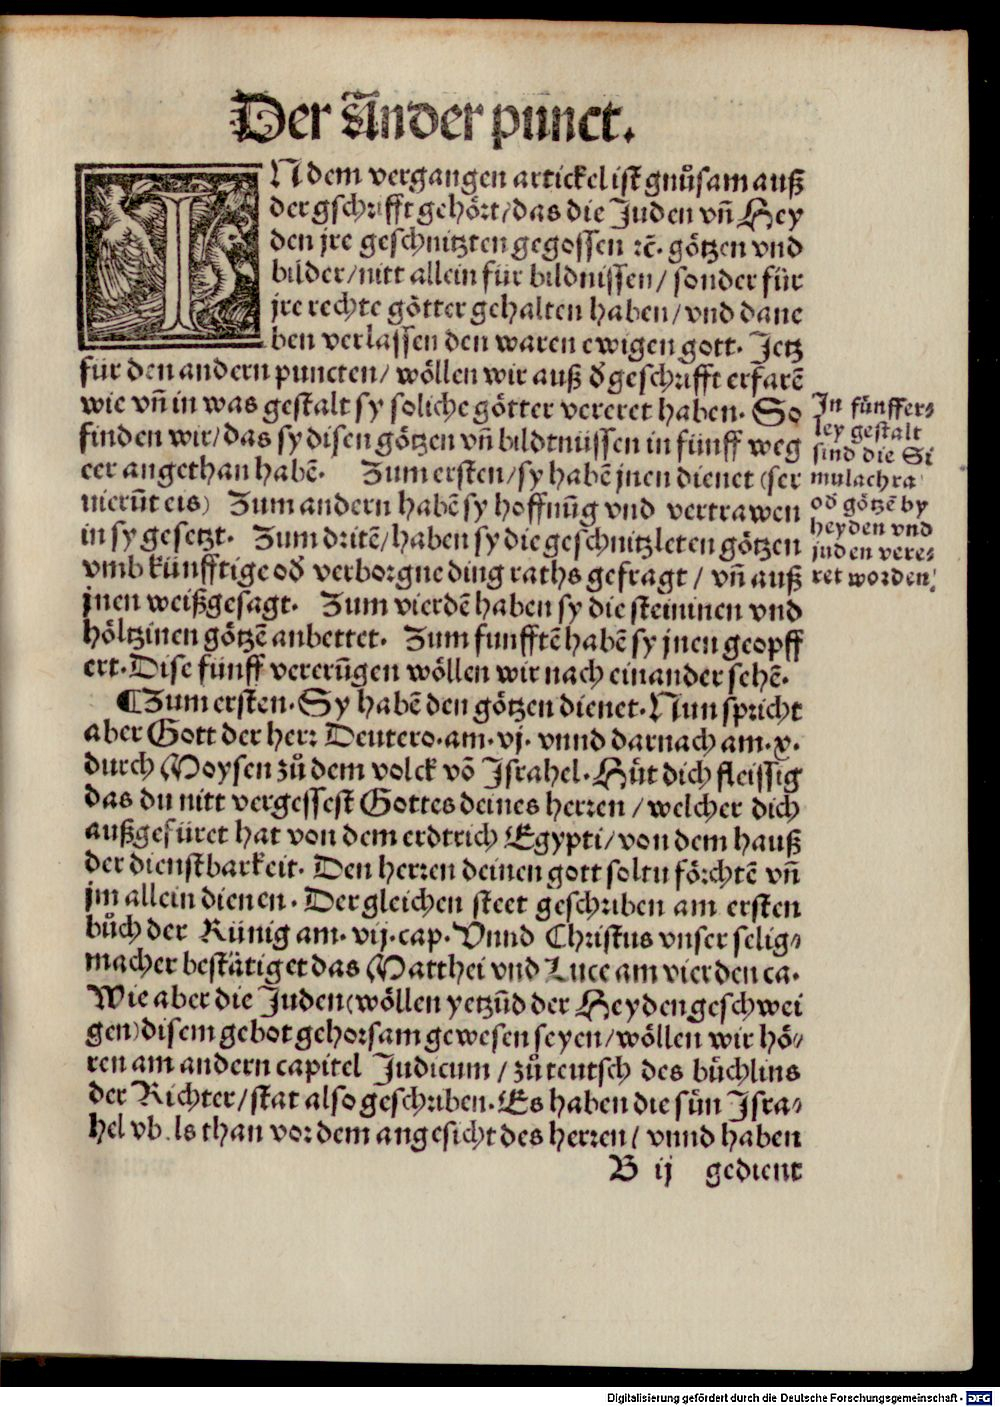 Der Ander punct.
IN dem vergangen artickel ist gnůsam auß
der gschrifft gehört/ das die Juden vñ Hey
den jre geschnitzten gegossen ꝛc̃. götzen vnd
bilder/ nitt allein für bildnissen/ sonder für
jre rechte götter gehalten haben/ vnd dane
ben verlassen den waren ewigen gott. Jetz
für den andern puncten/ wöllen wir auß ð geschrifft erfarẽ
wie vñ in was gestalt sy soliche götter vereret haben. So
finden wir/ das sy disen götzen vñ bildtnüssen in fünff weg
eer angethan habẽ. Zum ersten/ sy habẽ jnen dienet (ser
uierũt eis) Zum andern habẽ sy hoffnũg vnd vertrawen
in sy gesetzt. Zum dritẽ/ haben sy die geschnitzleten götzen
vmb künfftige oð verborgne ding raths gefragt / vñ auß
jnen weißgesagt. Zum vierdẽ haben sy die steininen vnd
höltzinen götzẽ anbettet. Zum funfftẽ habẽ sy jnen geopff
ert. Dise fünff vererũgen wöllen wir nach einander sehẽ.
In fünffer⸗
ley gestalt
sind die Si
mulachra
oð götzẽ by
heyden vnd
juden vere⸗
ret worden.
¶Zum ersten. Sy habẽ den götzen dienet. Nun spricht
aber Gott der herr Deutero. am. vj. vnnd darnach am. x.
durch Moysen zů dem volck võ Israhel. Hüt dich fleissig
das du nitt vergessest Gottes deines herren / welcher dich
außgefüret hat von dem erdtrich Egypti/ von dem hauß
der dienstbarkeit. Den herren deinen gott soltu förchtẽ vñ
jm allein dienen. Der gleichen steet geschriben am ersten
bůch der Künig am. vij. cap. Vnnd Christus vnser selig⸗
macher bestätiget das Matthei vnd Luce am vierden ca.
Wie aber die Juden (wöllen yetzũd der Heyden geschwei
gen) disem gebot gehorsam gewesen seyen/ wöllen wir hö⸗
ren am andern capitel Judicum / zů teutsch des büchlins
der Richter/ stat also geschriben. Es haben die sün Isra⸗
hel vb ls than vor dem angesicht des herren / vnnd haben
B ij gedient
Digitalisierung gefördert durch die Deutsche Forschungsgemeinschaft - DFG